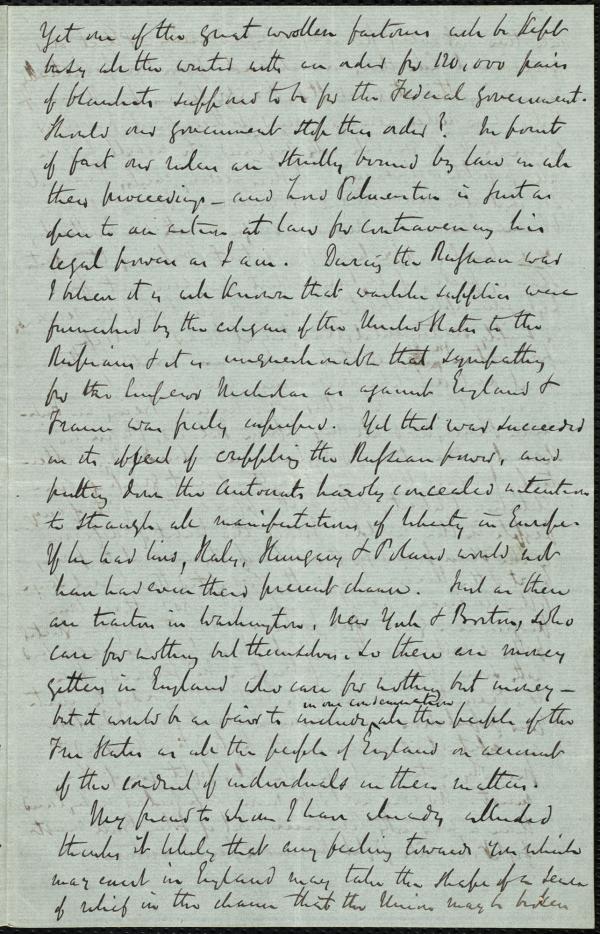 Yet one of the great woollen factories will be kept
busy all the winter with an order for 120,000 pairs
of blankets supposed to be for the Federal government.
Should our government stop this order? In point
of fact our rulers are strictly bound by law in all
their proceedings — and Lord Palmerston is just as
open to an action at law for contravening his
legal powers as I am. During the Russian war
I believe it is well known that warlike supplies were
furnished by the citizens of the United States to the
Russians & it is unquestionable that sympathy
for the Emperor Nicholas as against England &
France was freely expressed. Yet that war succeeded
in its object of crippling the Russian power, and
putting down the Autocrats hardly concealed intention
to strangle all manifestations of liberty in Europe.
If he had lived, Italy, Hungary & Poland would not
have had even their present chance. Just as there
are traitors in Washington, New York & Boston, who
care for nothing but themselves, so there are money
getters in England who care for nothing but money —
but it would be as fair to include in one condemnation all the people of the
Free States as all the people of England on account
of the conduct of individuals in these matters.
My friend to whom I have already alluded
thinks it likely that any feeling towards you which
may exist in England may take the shape of a sense
of relief in the chance that the Union may be broken